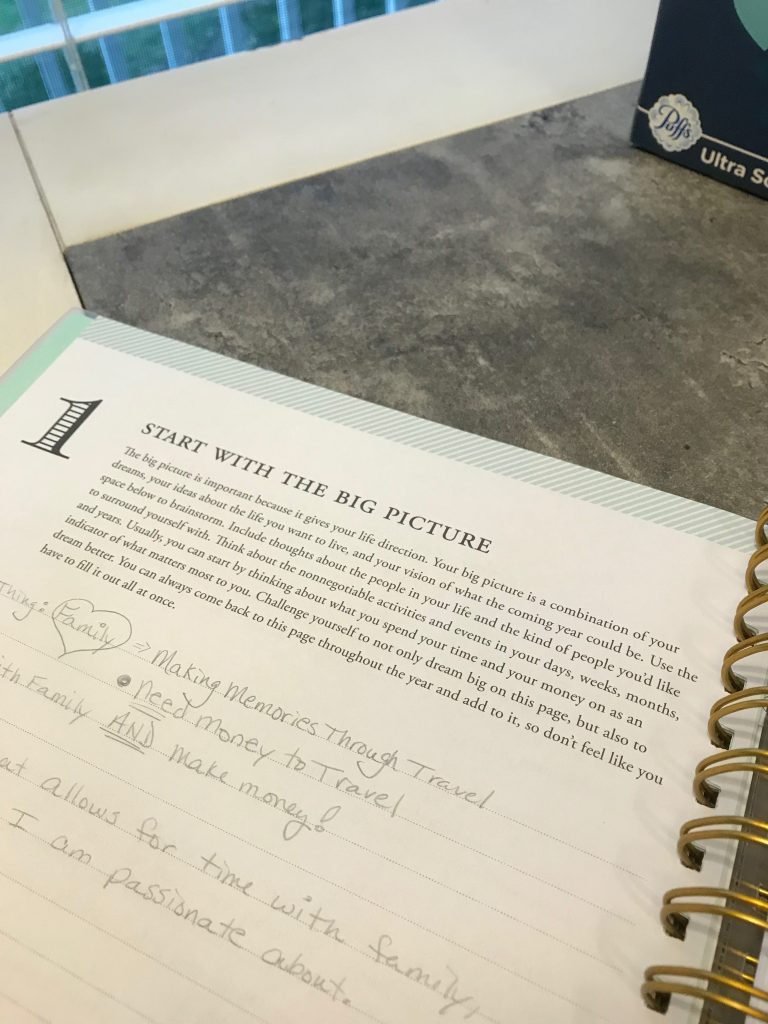 Puffs
Ultra
1
START WITH THE BIG PICTURE
The big picture is important because it gives your life direction. Your big picture is a combination of your
dreams, your ideas about the life you want to live, and your vision of what the coming year could be. Use the
space below to brainstorm. Include thoughts about the people in your life and the kind of people you'd like
to surround yourself with. Think about the nonnegotiable activities and events in your days, weeks, months,
and years. Usually, you can start by thinking about what you spend your time and your money on as an
indicator of what matters most to you. Challenge yourself to not only dream big on this page, but also to
dream better. You can always come back to this page throughout the year and add to it, so don't feel like you
have to fill it out all at once.
Thing: Family ⇒ Making Memories Through Travel
• need money to Travel
with Family AND make money!
allows for time with family,
I am passionate about.